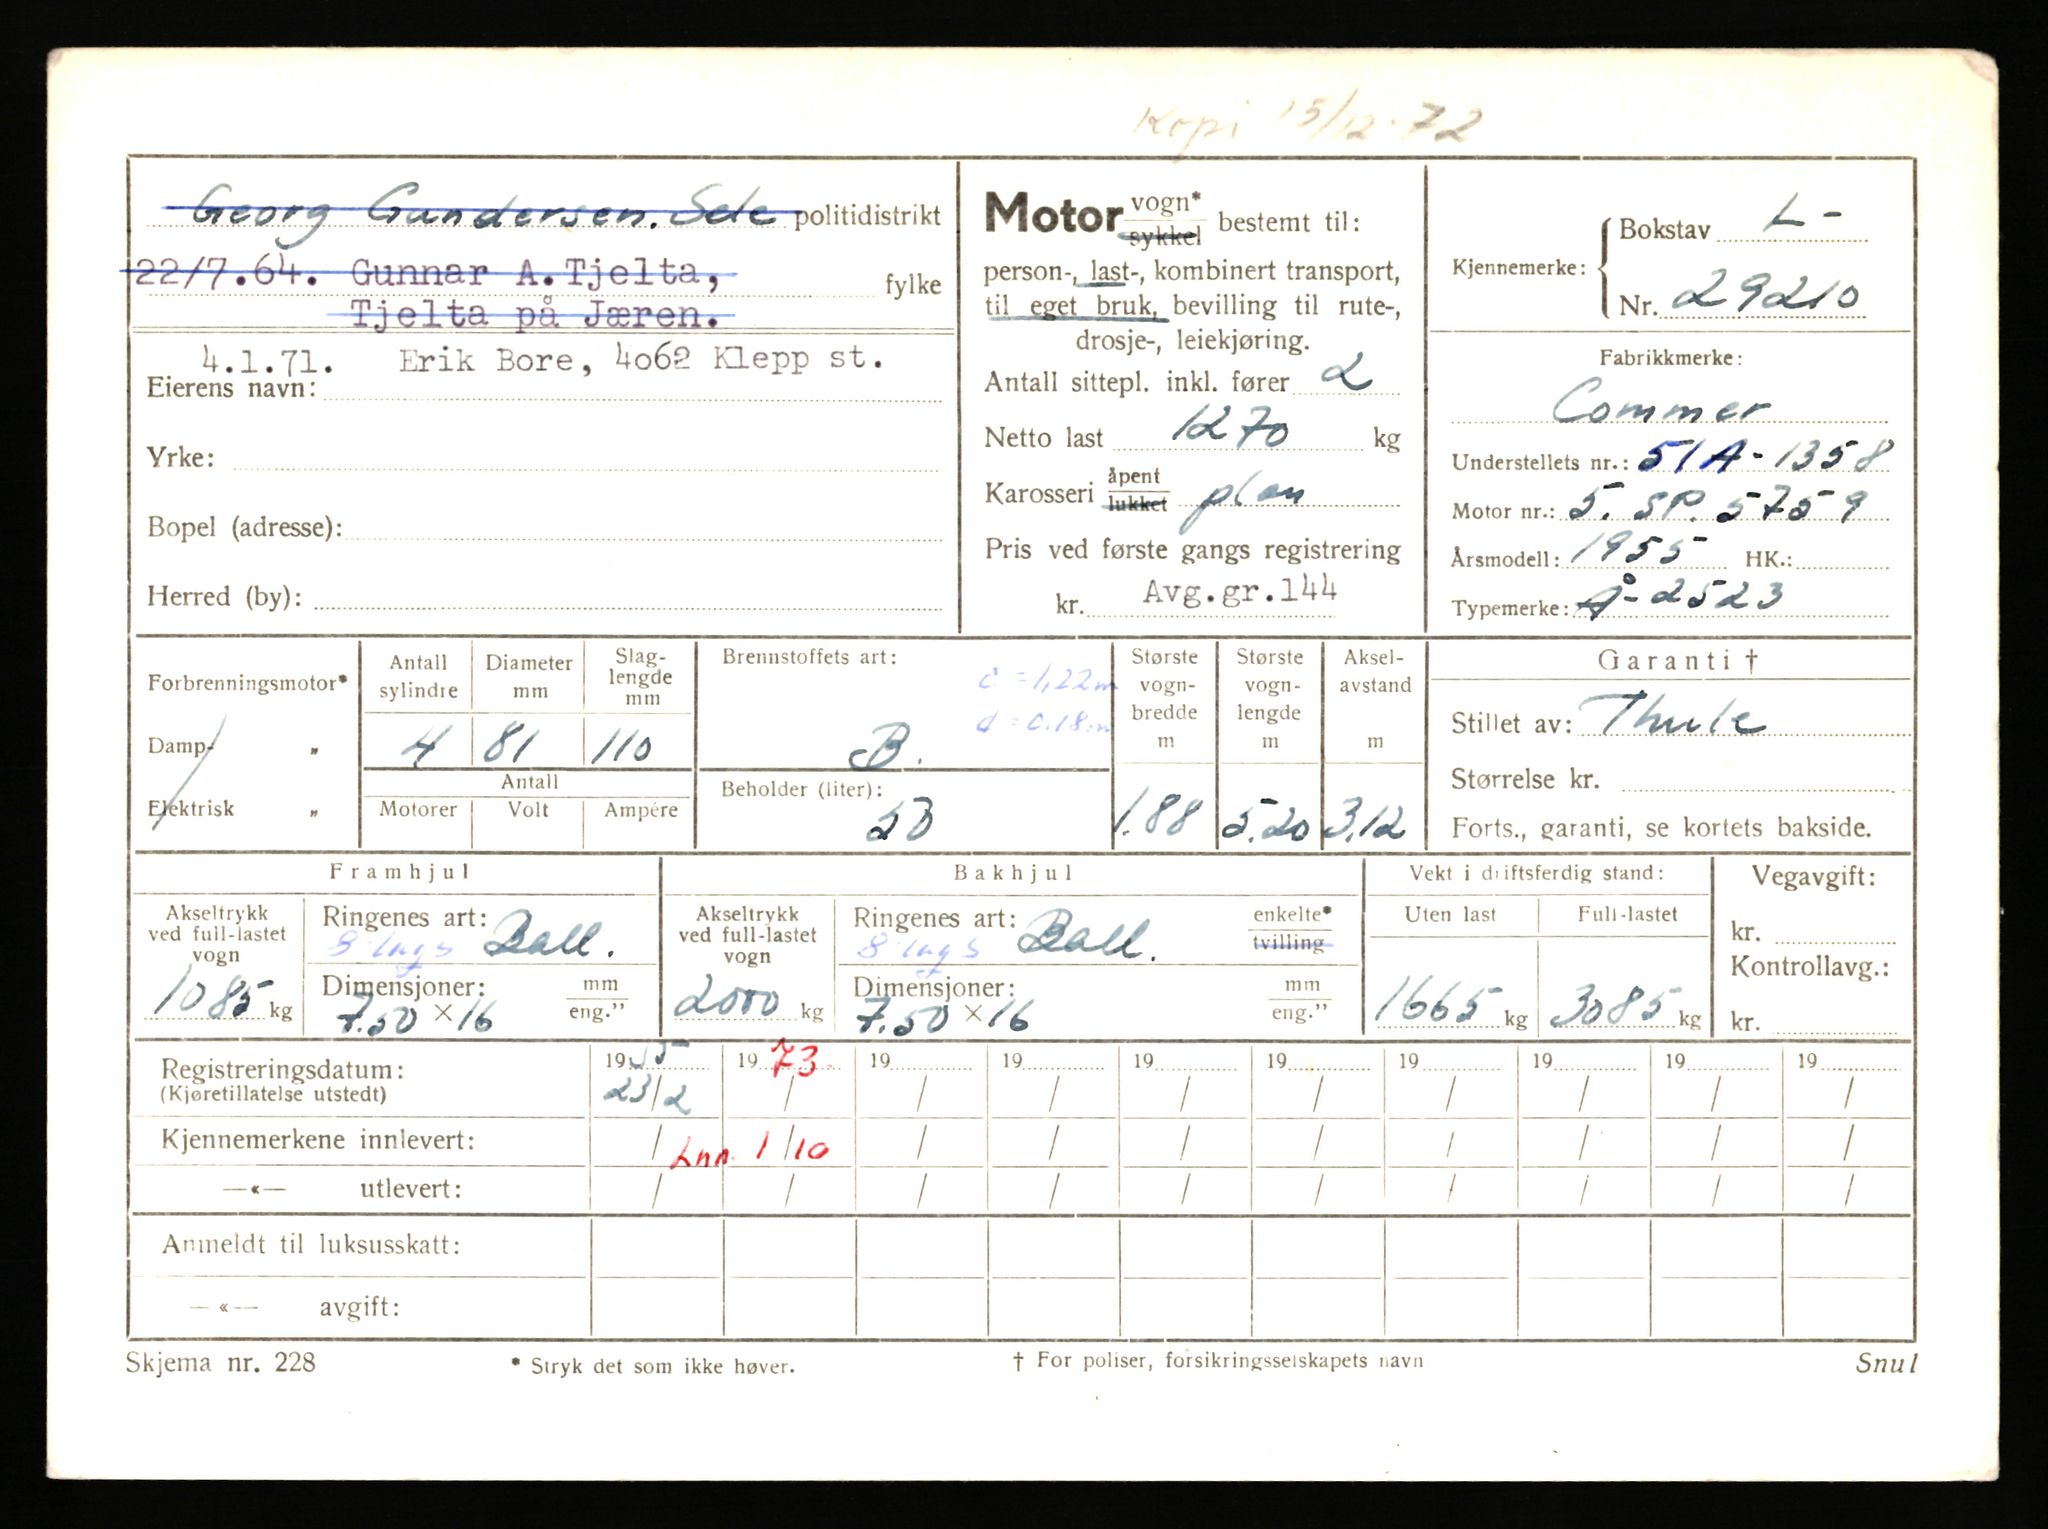 Kopi 15/12-72
Georg Gundersen. Sele politidistrikt
22/7.64. Gunnar A. Tjelta, fylke
Tjelta på Jæren.
4.1.71. Erik Bore, 4062 Klepp st.
Eierens navn:
Yrke:
Bopel (adresse):
Herred (by):
Motor vogn* sykkel bestemt til:
person-, last-, kombinert transport,
til eget bruk, bevilling til rute-,
drosje-, leiekjøring.
Antall sittepl. inkl. fører 2
Netto last 1270 kg
Karosseri åpent lukket plan
Pris ved første gangs registrering
kr. Avg.gr.144
Kjennemerke: Bokstav L-
Nr. 29210
Fabrikkmerke:
Commer
Understellets nr.: 51A-1358
Motor nr.: 5. SP. 5759
Årsmodell: 1955 HK.:
Typemerke: Å-2523
Forbrenningsmotor*
Damp- „
Elektrisk „
Antall sylindre 4
Diameter mm 81
Slag-lengde mm 110
Antall
Motorer Volt Ampére
Brennstoffets art:
c = 1,22m
d = 0.18m
B.
Beholder (liter):
50
Største vogn-bredde m 1.88
Største vogn-lengde m 5.20
Aksel-avstand m 3.12
Garanti †
Stillet av: Thule
Størrelse kr.
Forts., garanti, se kortets bakside.
Framhjul
Akseltrykk ved full-lastet vogn 1085 kg
Ringenes art: 8 lags Ball.
Dimensjoner: mm eng.”
7.50 × 16
Bakhjul
Akseltrykk ved full-lastet vogn 2000 kg
Ringenes art: 8 lags Ball. enkelte* tvilling
Dimensjoner: mm eng.”
7.50 × 16
Vekt i driftsferdig stand:
Uten last Full-lastet
1665 kg 3085 kg
Vegavgift:
kr.
Kontrollavg.:
kr.
Registreringsdatum: 1955 1973 19 19 19 19 19 19 19 19
(Kjøretillatelse utstedt) 23/2 / / / / / / / / /
Kjennemerkene innlevert: / Inn. 1/10 / / / / / / / /
—«— utlevert: / / / / / / / / / /
Anmeldt til luksusskatt:
—«— avgift:
Skjema nr. 228 * Stryk det som ikke høver. † For poliser, forsikringsselskapets navn Snul